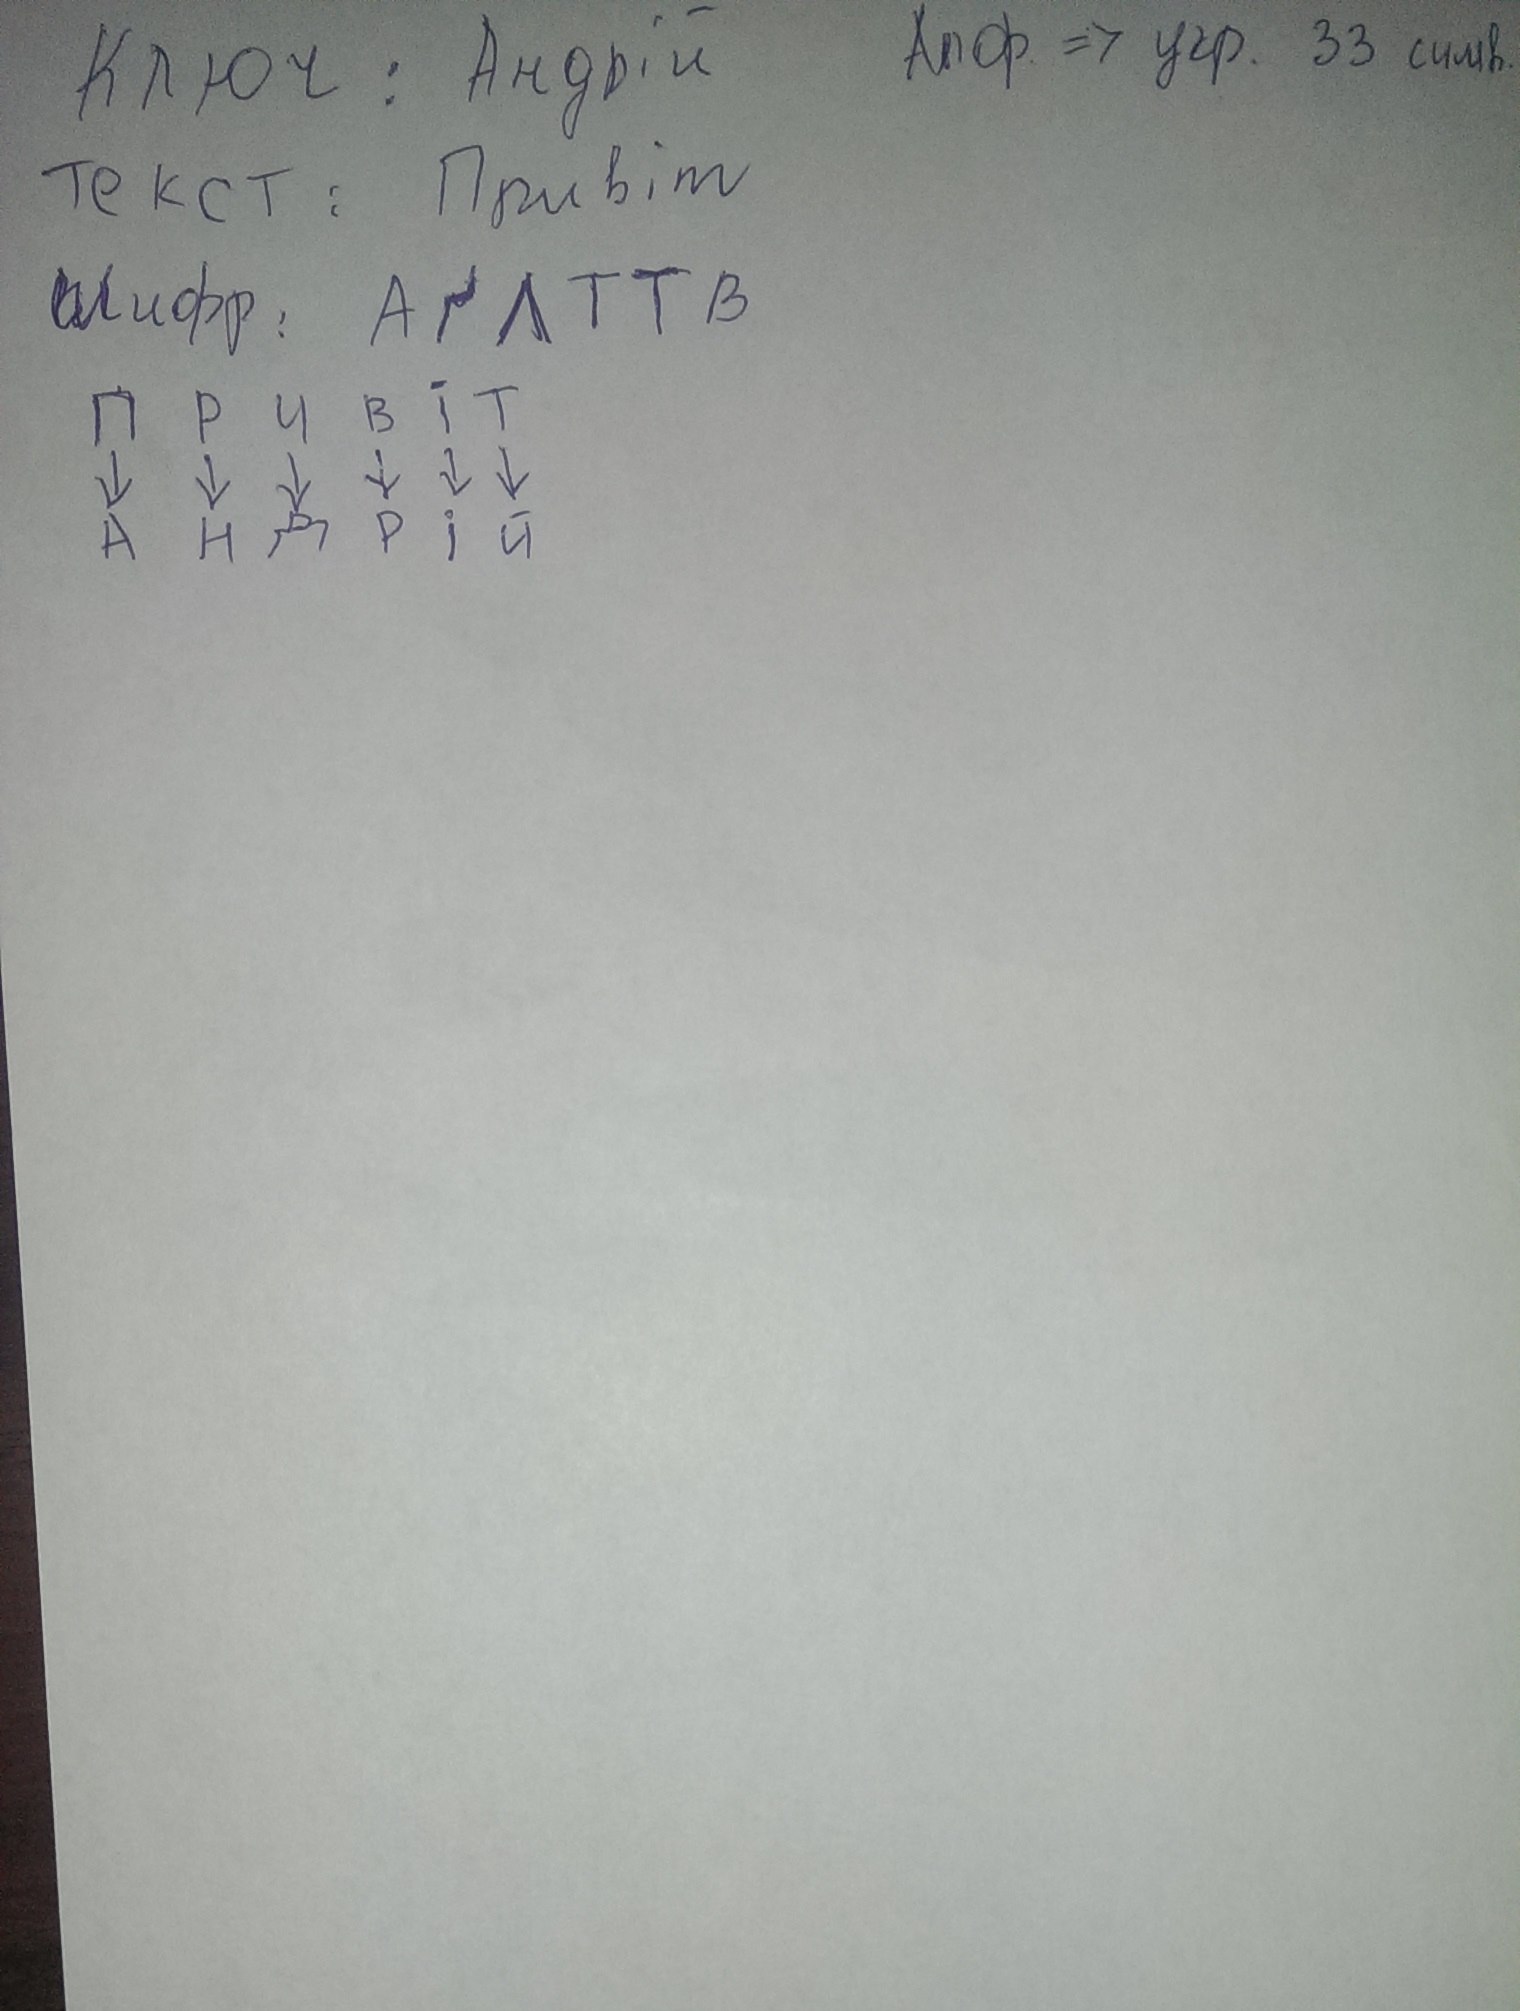 Ключ: Андрій Алф. => укр. 33 симв.
Текст: Привіт
Шифр: А Ґ Л Т Т В
П Р И В І Т
↓ ↓ ↓ ↓ ↓ ↓
А Н Д Р І Й